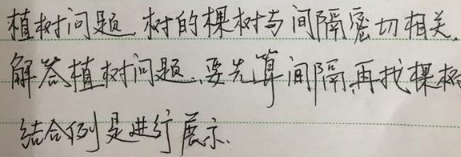 植树问题 树的棵树与间隔密切相关.
解答植树问题.要先算间隔,再找棵树
结合例是进行展示.